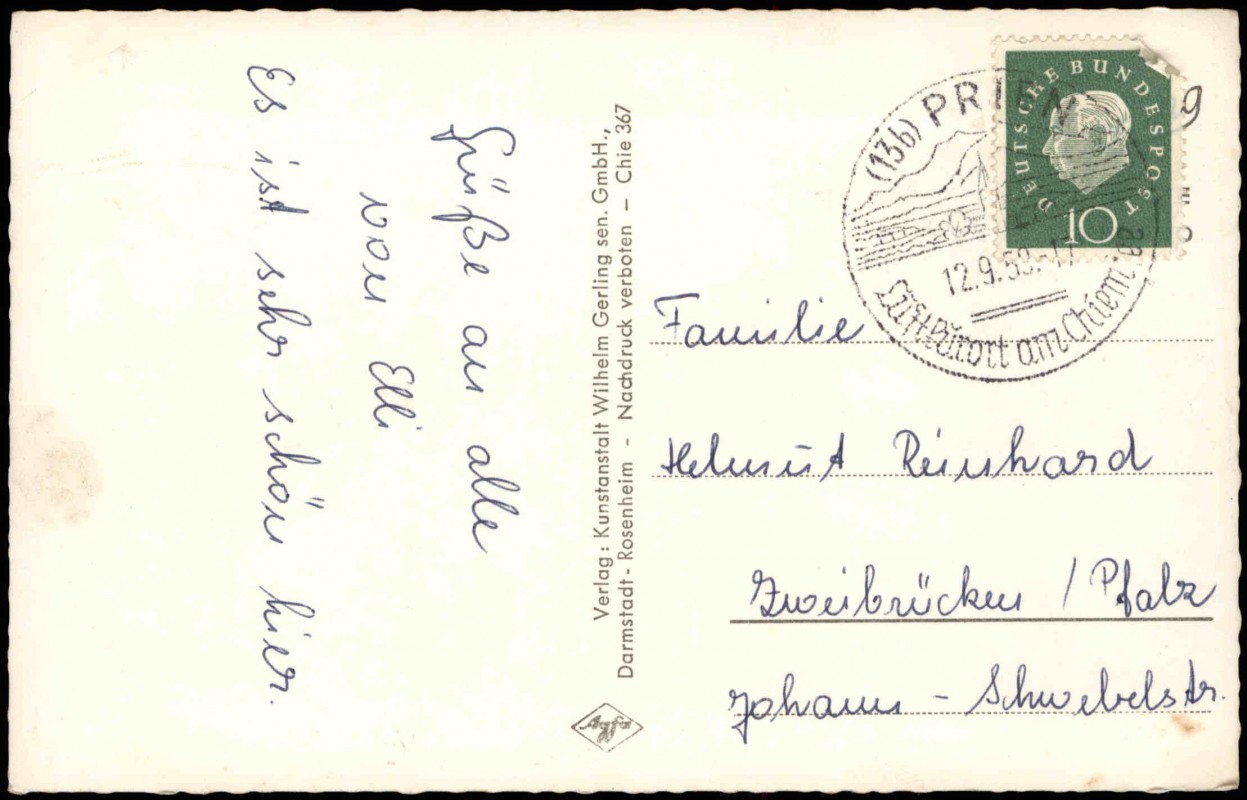 Es ist sehr schön hier.
Grüße an alle
von Elli
Verlag: Kunstanstalt Wilhelm Gerling sen. GmbH.,
Darmstadt - Rosenheim - Nachdruck verboten - Chie 367
Agfa
(13b) PRIEN
12.9.59.-17
Luftkurort am Chiemsee
DEUTSCHE BUNDESPOST
10
Familie
Helmut Reinhard
Zweibrücken / Pfalz
Johann - Schwebelstr.